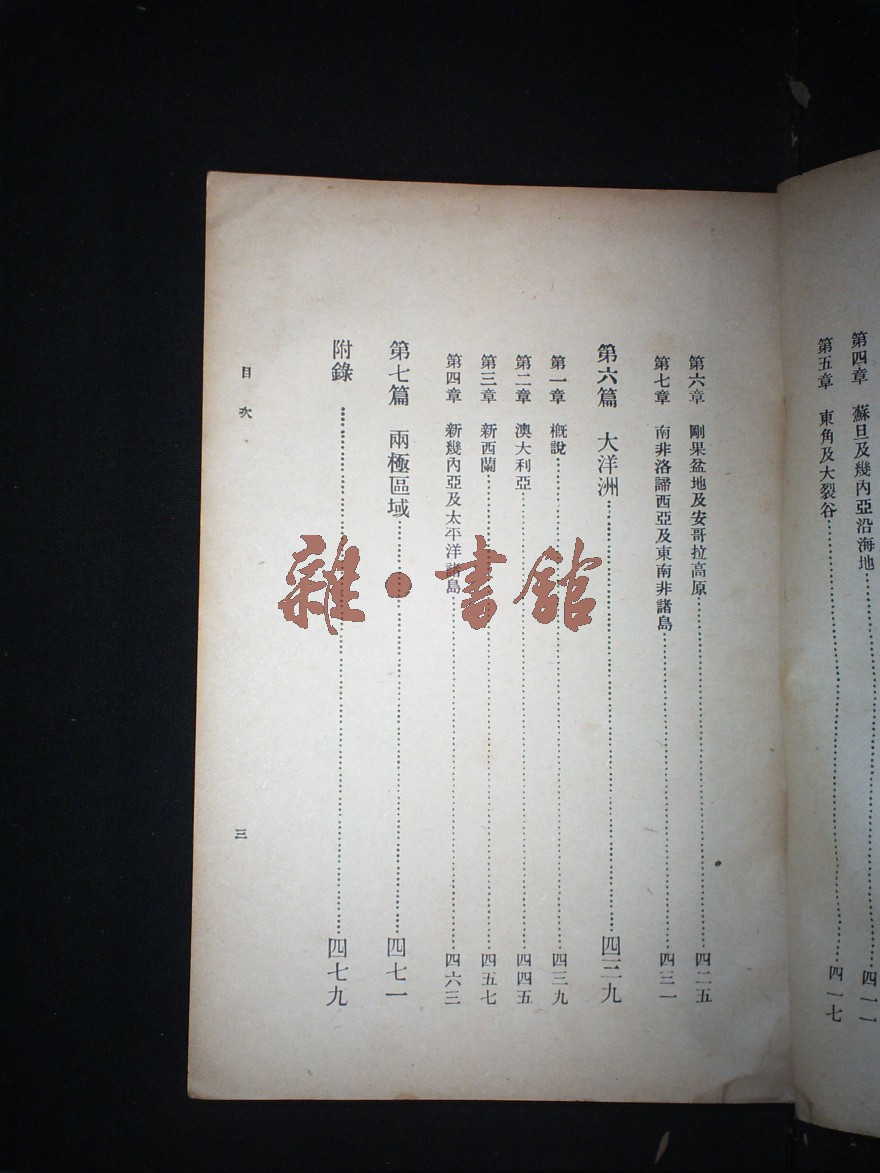 第四章　蘇旦及幾內亞沿海地……四一一
第五章　東角及大裂谷……四一七
第六章　剛果盆地及安哥拉高原……四二五
第七章　南非洛諦西亞及東南非諸島……四三一
第六篇　大洋洲……四三九
第一章　概說……四三九
第二章　澳大利亞……四四五
第三章　新西蘭……四五七
第四章　新幾內亞及太平洋諸島……四六三
第七篇　兩極區域……四七一
附錄……四七九
目次
三
雜·書館